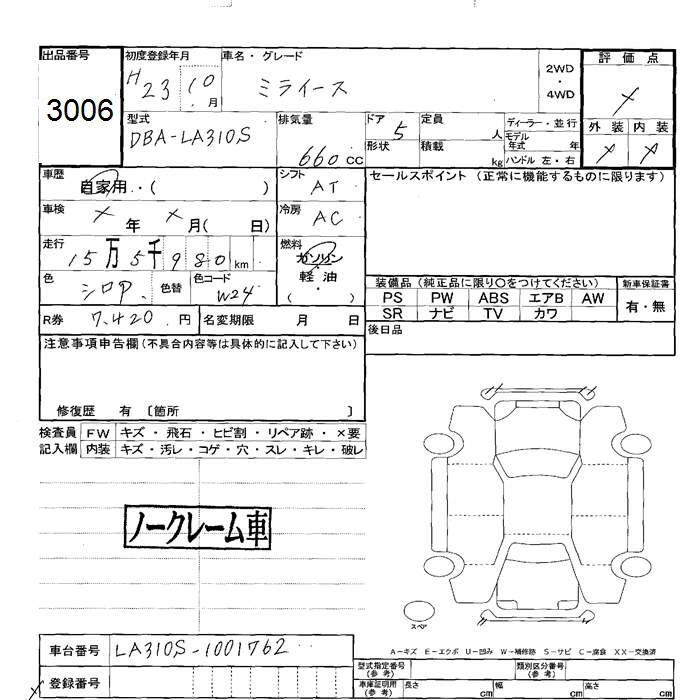 出品番号
3006
初度登録年月
H23 10月
車名・グレード
ミライース
2WD
・
4WD
評価点
×
型式
DBA-LA310S
排気量
660cc
ドア
5
形状
定員
人
積載
kg
ディーラー・並行
モデル年式 年
ハンドル 左・右
外装 内装
× ×
車歴
自家用・・( )
シフト
AT
セールスポイント (正常に機能するものに限ります)
車検
× 年 × 月( 日)
冷房
AC
走行
15万5千980km
燃料
ガソリン
・
軽油
( )
色
シロP.
色替
色コード
W24
装備品 (純正品に限り○をつけてください)
PS PW ABS エアB AW
SR ナビ TV カワ
新車保証書
有・無
R券
7,420.円
名変期限 月 日
後日品
注意事項申告欄(不具合内容等は具体的に記入して下さい)
修復歴 有 〔箇所 〕
検査員
記入欄
FW キズ・飛石・ヒビ割・リペア跡・×要
内装 キズ・汚レ・コゲ・穴・スレ・キレ・破レ
ノークレーム車
スペア
A-キズ E-エクボ U-凹み W-補修跡 S-サビ C-腐食 XX-交換済
車台番号
LA310S-1001762
登録番号
型式指定番号
(参考)
類別区分番号
(参考)
車庫証明用
(参考)
長さ cm 幅 cm 高さ cm